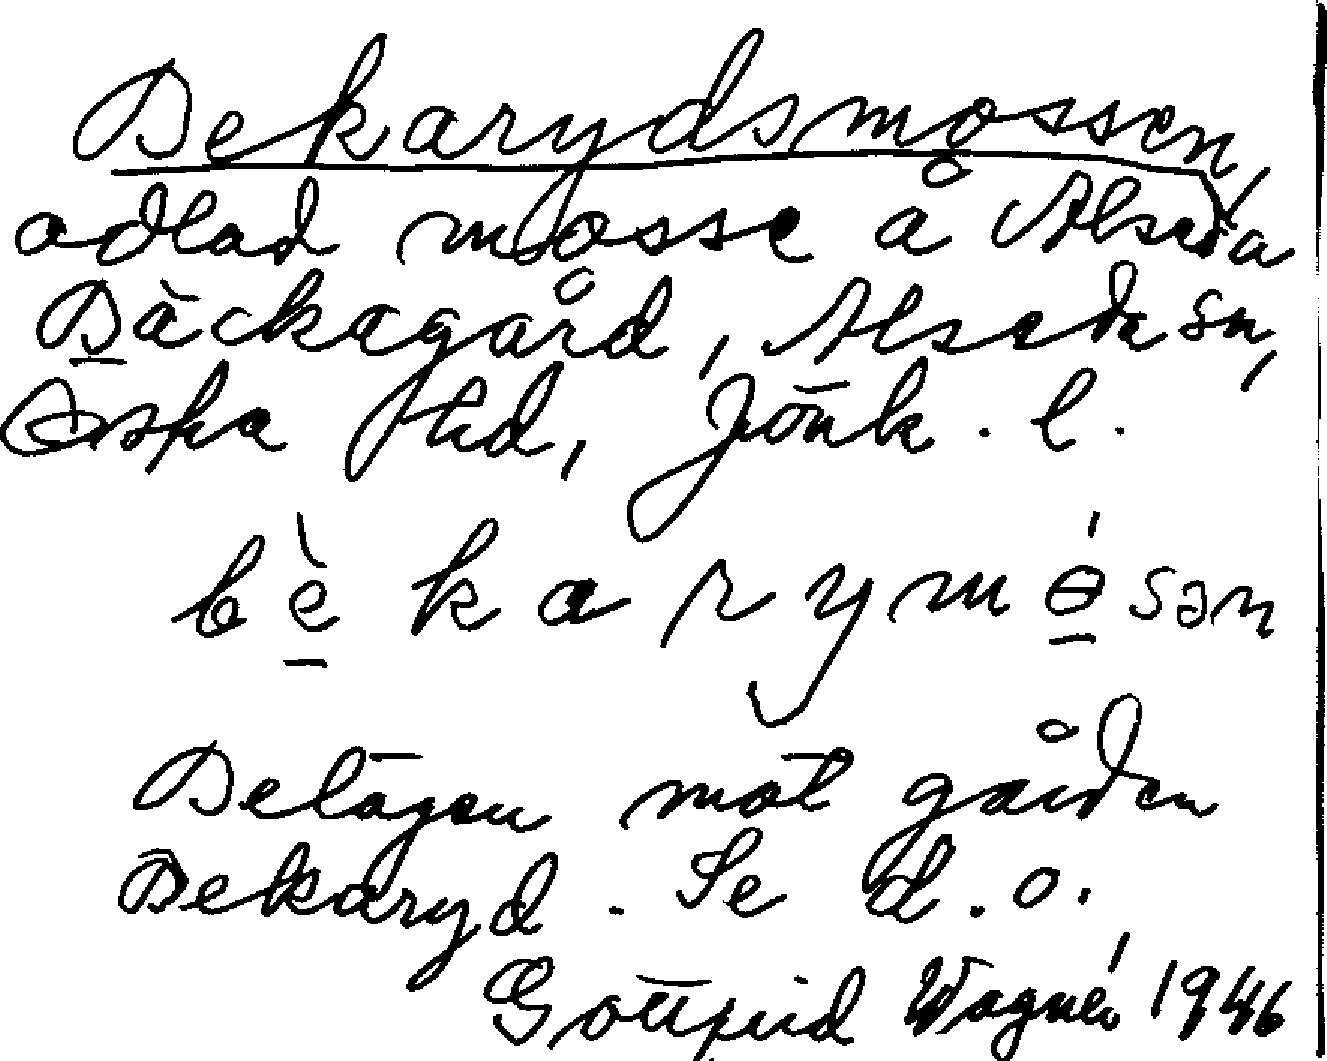 Bekarydsmossen,
odlad mosse å Alseda
Bäckagård, Alseda sn,
Östra hd, Jönk. l.
bèkarymósən
Belägen mot gården
Bekaryd. Se d. o.
Gottfrid Wagnér 1946